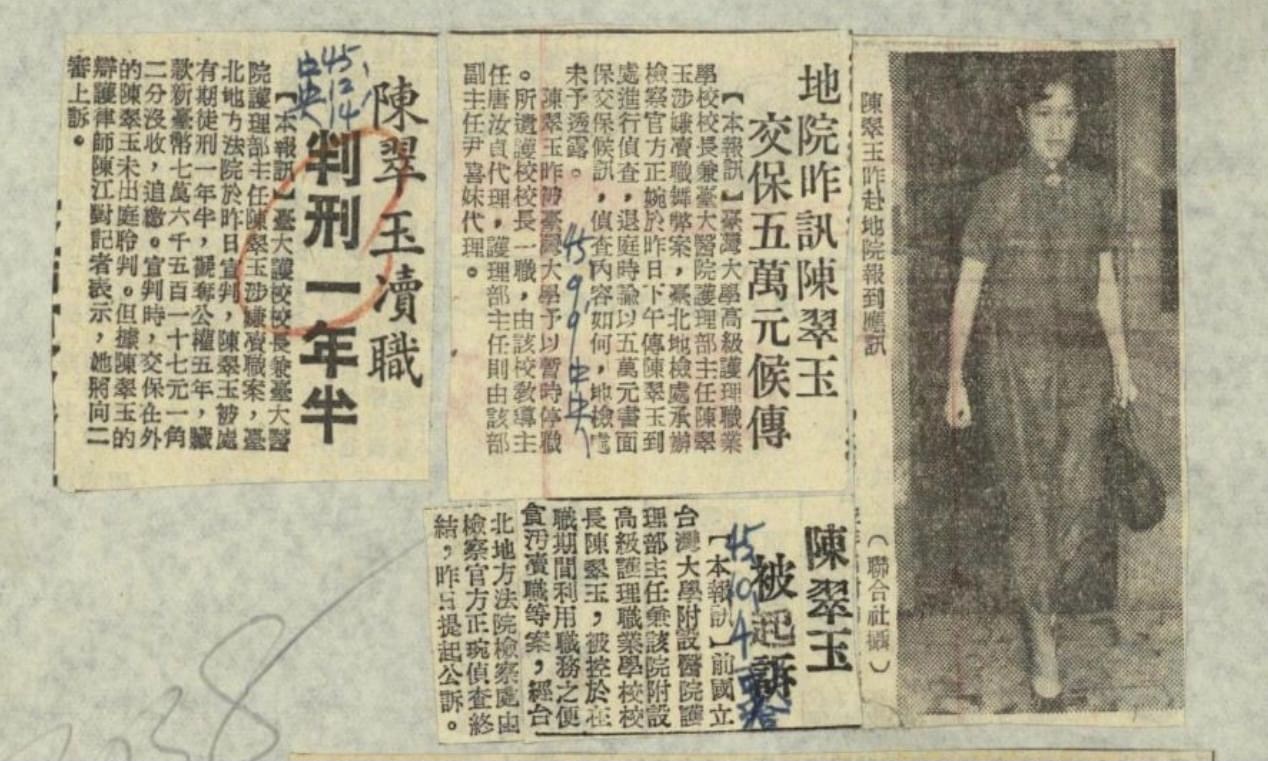 陳翠玉昨赴地院報到應訊
(聯合社攝)
地院昨訊陳翠玉
交保五萬元候傳
【本報訊】臺灣大學高級護理職業
學校校長兼臺大醫院護理部主任陳翠
玉涉嫌瀆職舞弊案,臺北地檢處承辦
檢察官方正婉於昨日下午傳陳翠玉到
處進行偵查,退庭時諭以五萬元書面
保交保候訊,偵查內容如何,地檢處
未予透露。
陳翠玉昨被臺灣大學予以暫時停職
。所遺護校校長一職,由該校教導主
任唐汝貞代理,護理部主任則由該部
副主任尹喜妹代理。
45.9.9中央
陳翠玉
被起訴
45.10.4
【本報訊】前國立
台灣大學附設醫院護
理部主任兼該院附設
高級護理職業學校校
長陳翠玉,被控於在
職期間利用職務之便
貪污瀆職等案,經台
北地方法院檢察處由
檢察官方正琬偵查終
結,昨日提起公訴。
陳翠玉瀆職
判刑一年半
45.12.14
中央
【本報訊】臺大護校校長兼臺大醫
院護理部主任陳翠玉涉嫌瀆職案,臺
北地方法院於昨日宣判,陳翠玉被處
有期徒刑一年半,褫奪公權五年,贓
款新臺幣七萬六千五百一十七元一角
二分沒收,追繳。宣判時,交保在外
的陳翠玉未出庭聆判。但據陳翠玉的
辯護律師陳江對記者表示,她將向二
審上訴。